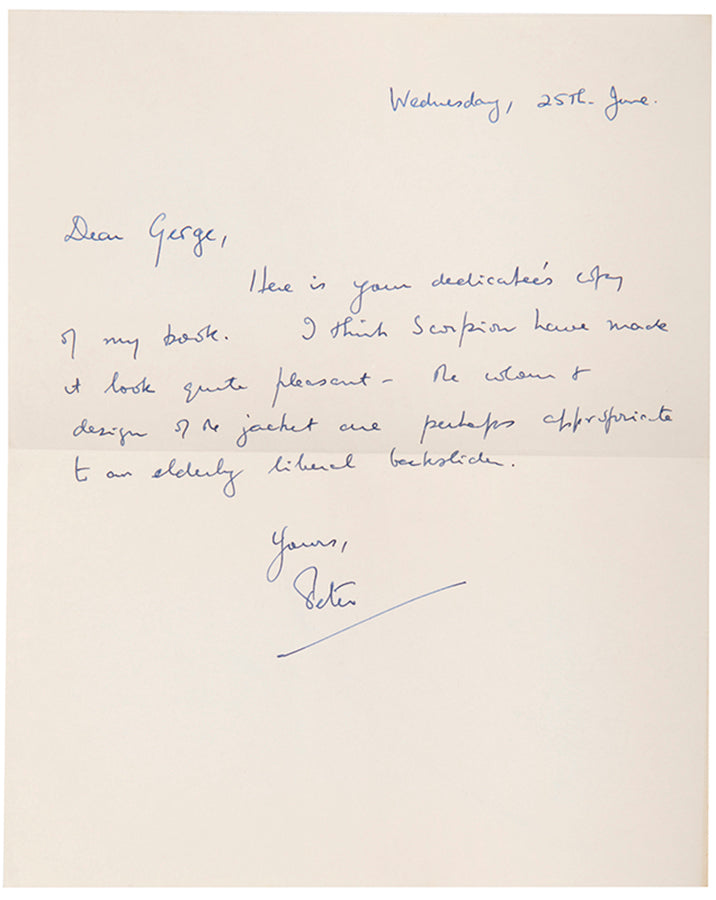 Wednesday, 25th. June.
Dear Gerge,
Here is your dedicatee's copy
of my book. I think Scorpion have made
it look quite pleasant - the colour &
design of the jacket are perhaps appropriate
to an elderly liberal backslider.
Yours,
Peter